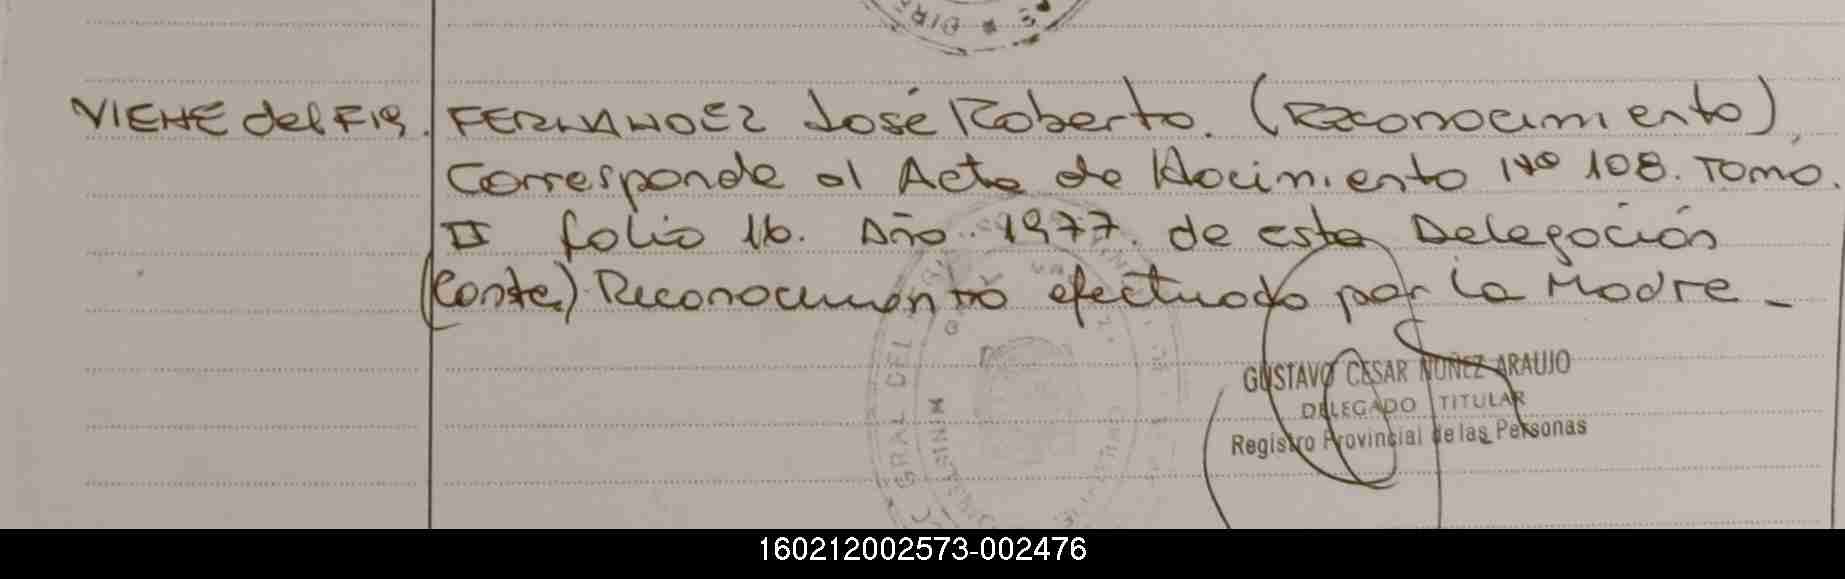 DIRE
VIENE del F19. FERNANDEZ José Roberto. (Reconocimiento)
Corresponde al Acta de Nacimiento Nº 108. Tomo.
II folio 16. Año. 1977. de esta Delegación
(Conste.) Reconocimiento efectuado por la Madre_
GRAL DEL
MINIST
GUSTAVO CESAR NUÑEZ ARAUJO
DELEGADO TITULAR
Registro Provincial de las Personas
160212002573-002476